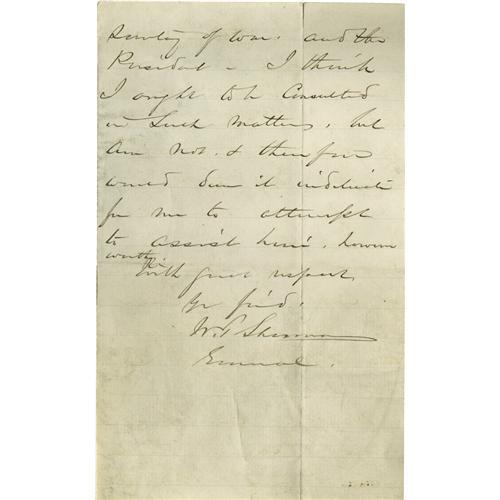 Secretary of War. and the
President - I think
I ought to be Consulted
in Such Matters, but
am not. & therefore
would deem it indelicate
for me to attempt
to assist him, however
worthy
With great respect
Yr frind.
W. T. Sherman
General.